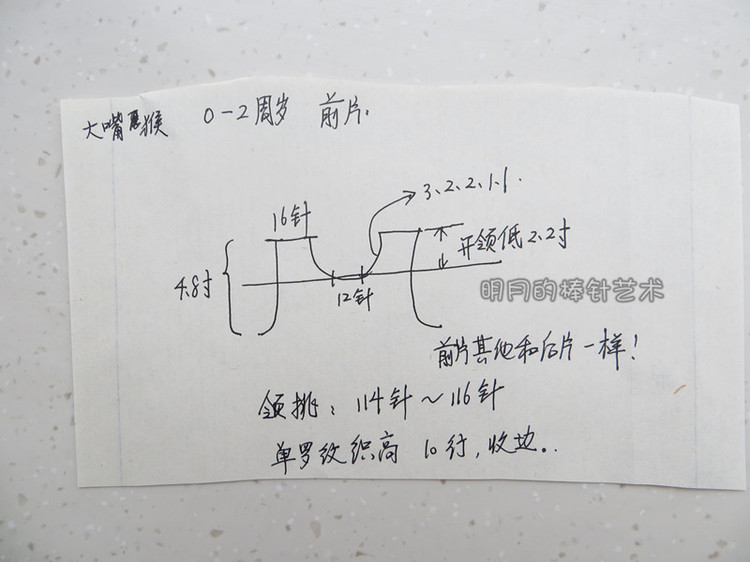 大嘴恶猴 0-2周岁 前片.
3、2、2、1、1.
16针
开领低2.2寸
4.8寸
明月的棒针艺术
12针
前片其他和后片一样!
领挑: 114针~116针
单罗纹织高 10行,收边..